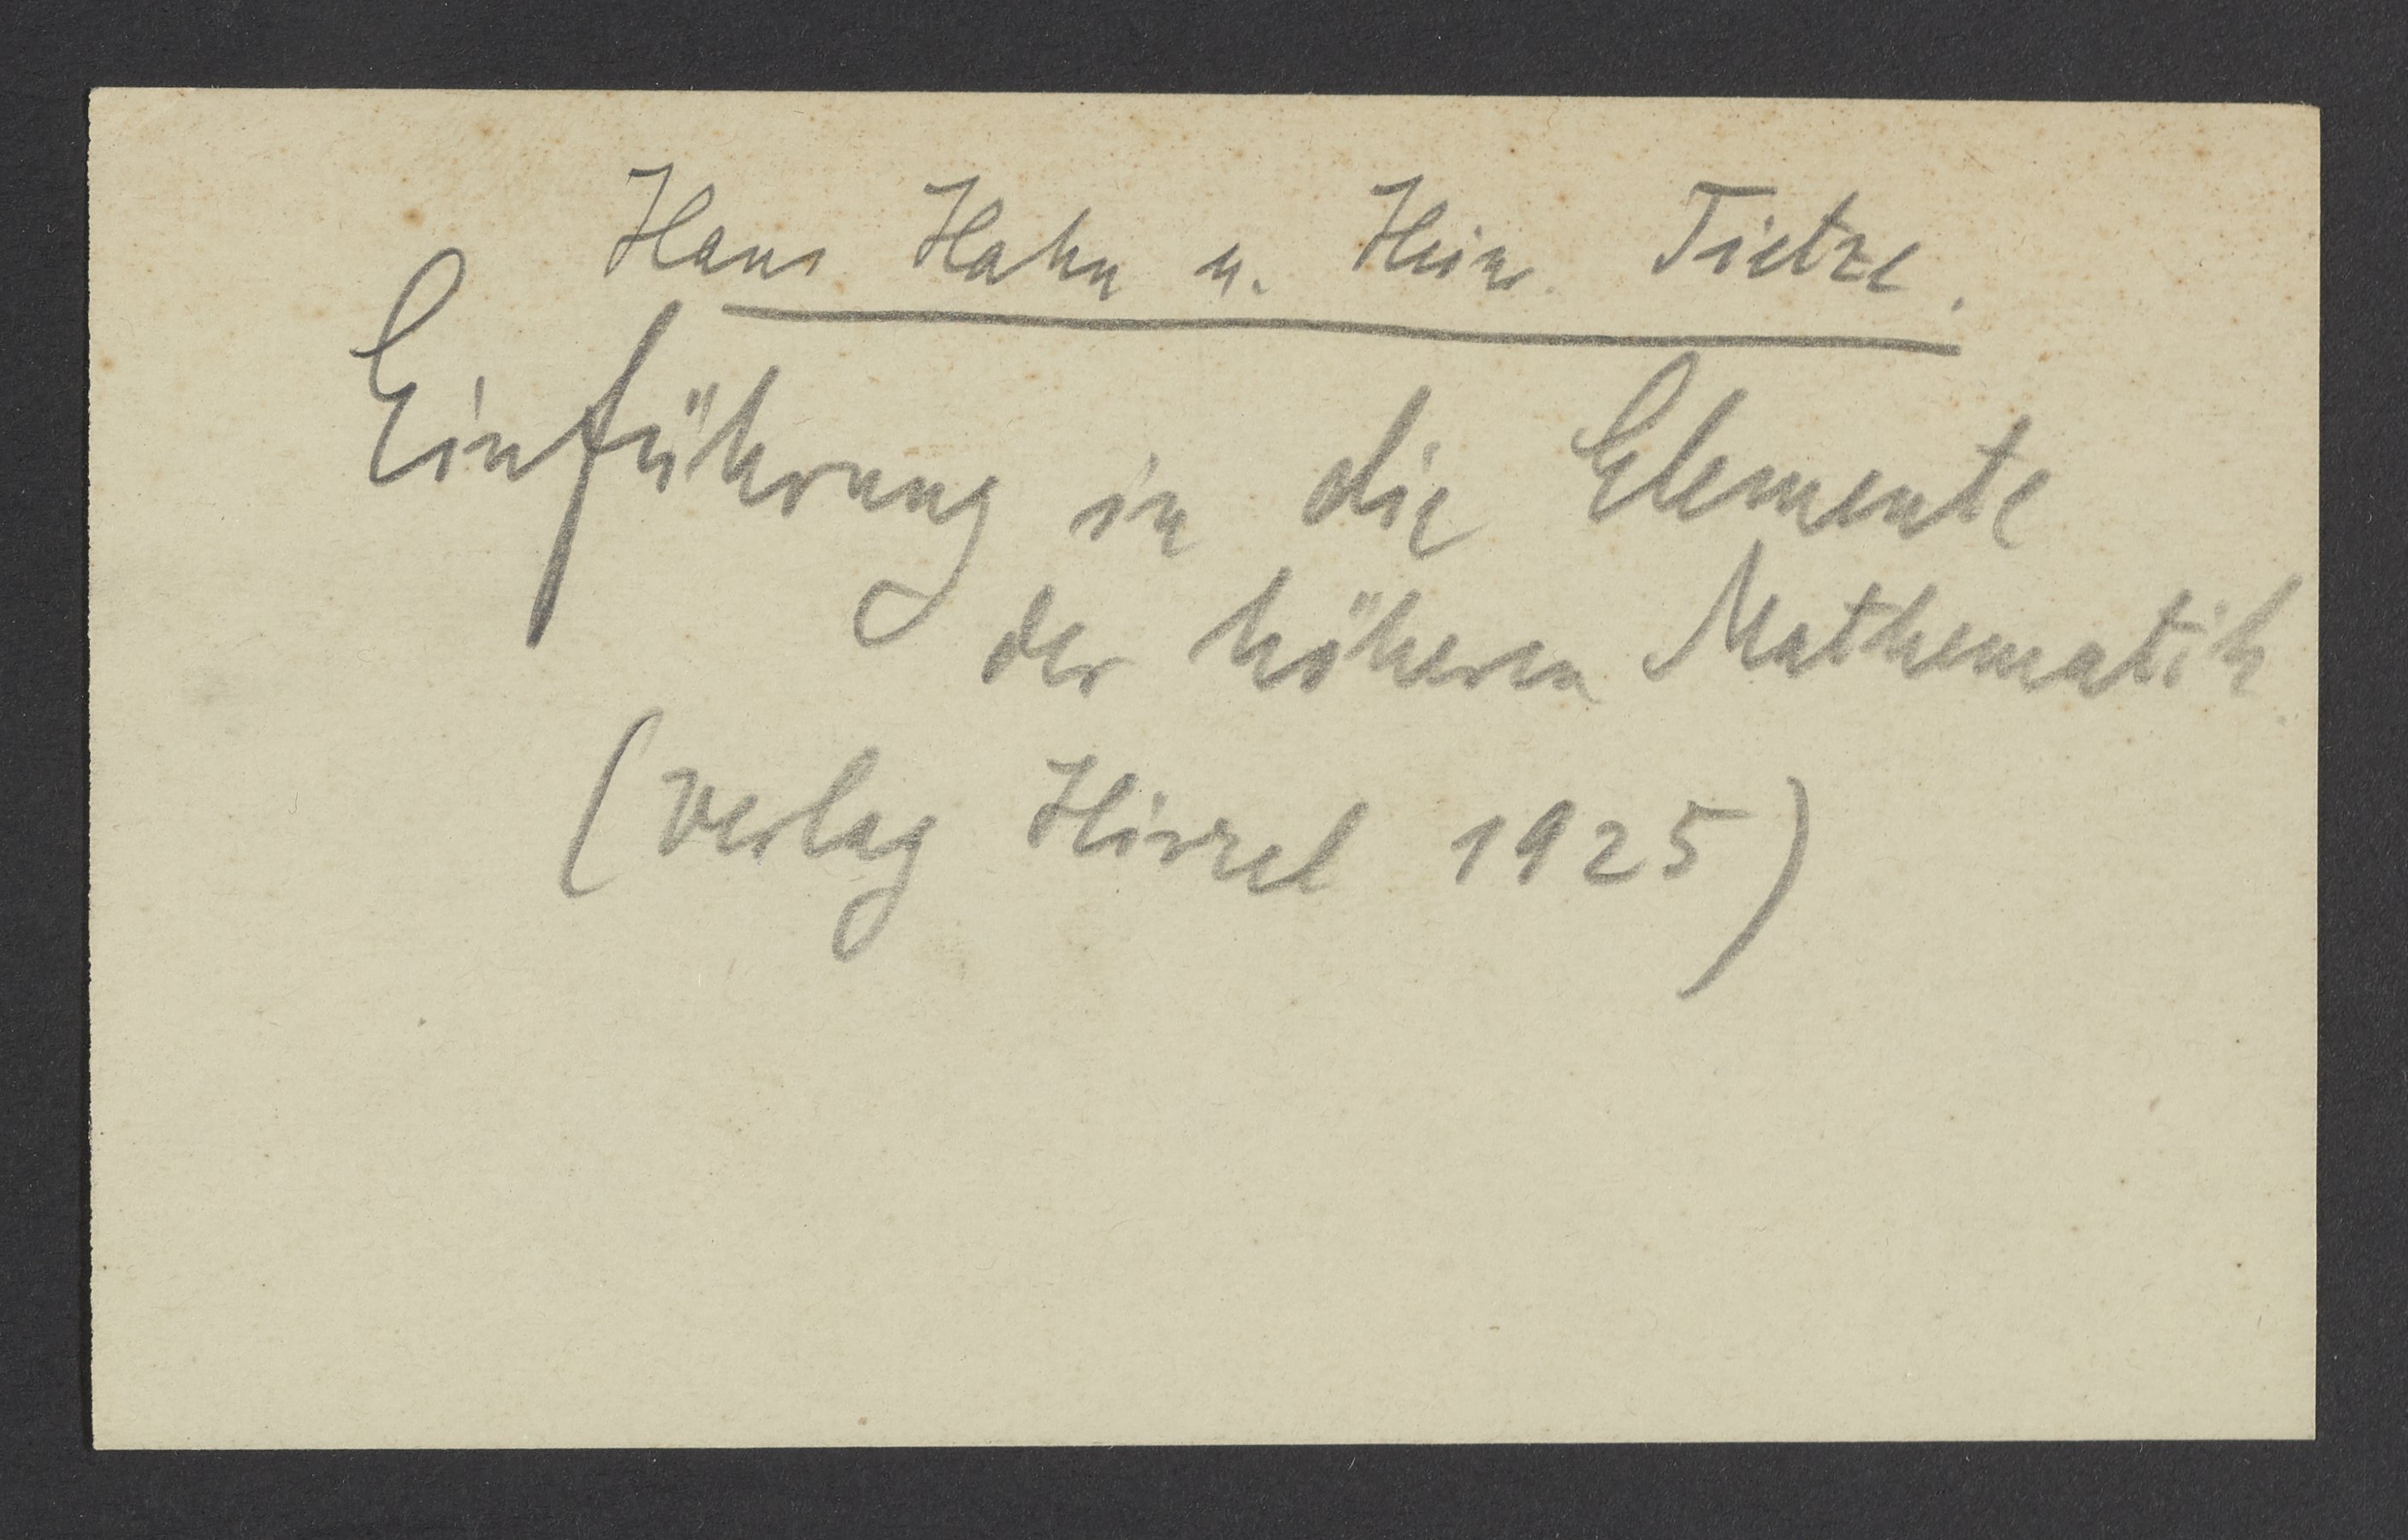 Hans Hahn u. Hein. Tietze.
Einführung in die Elemente
der höheren Mathematik
(Verlag Hirzel 1925)